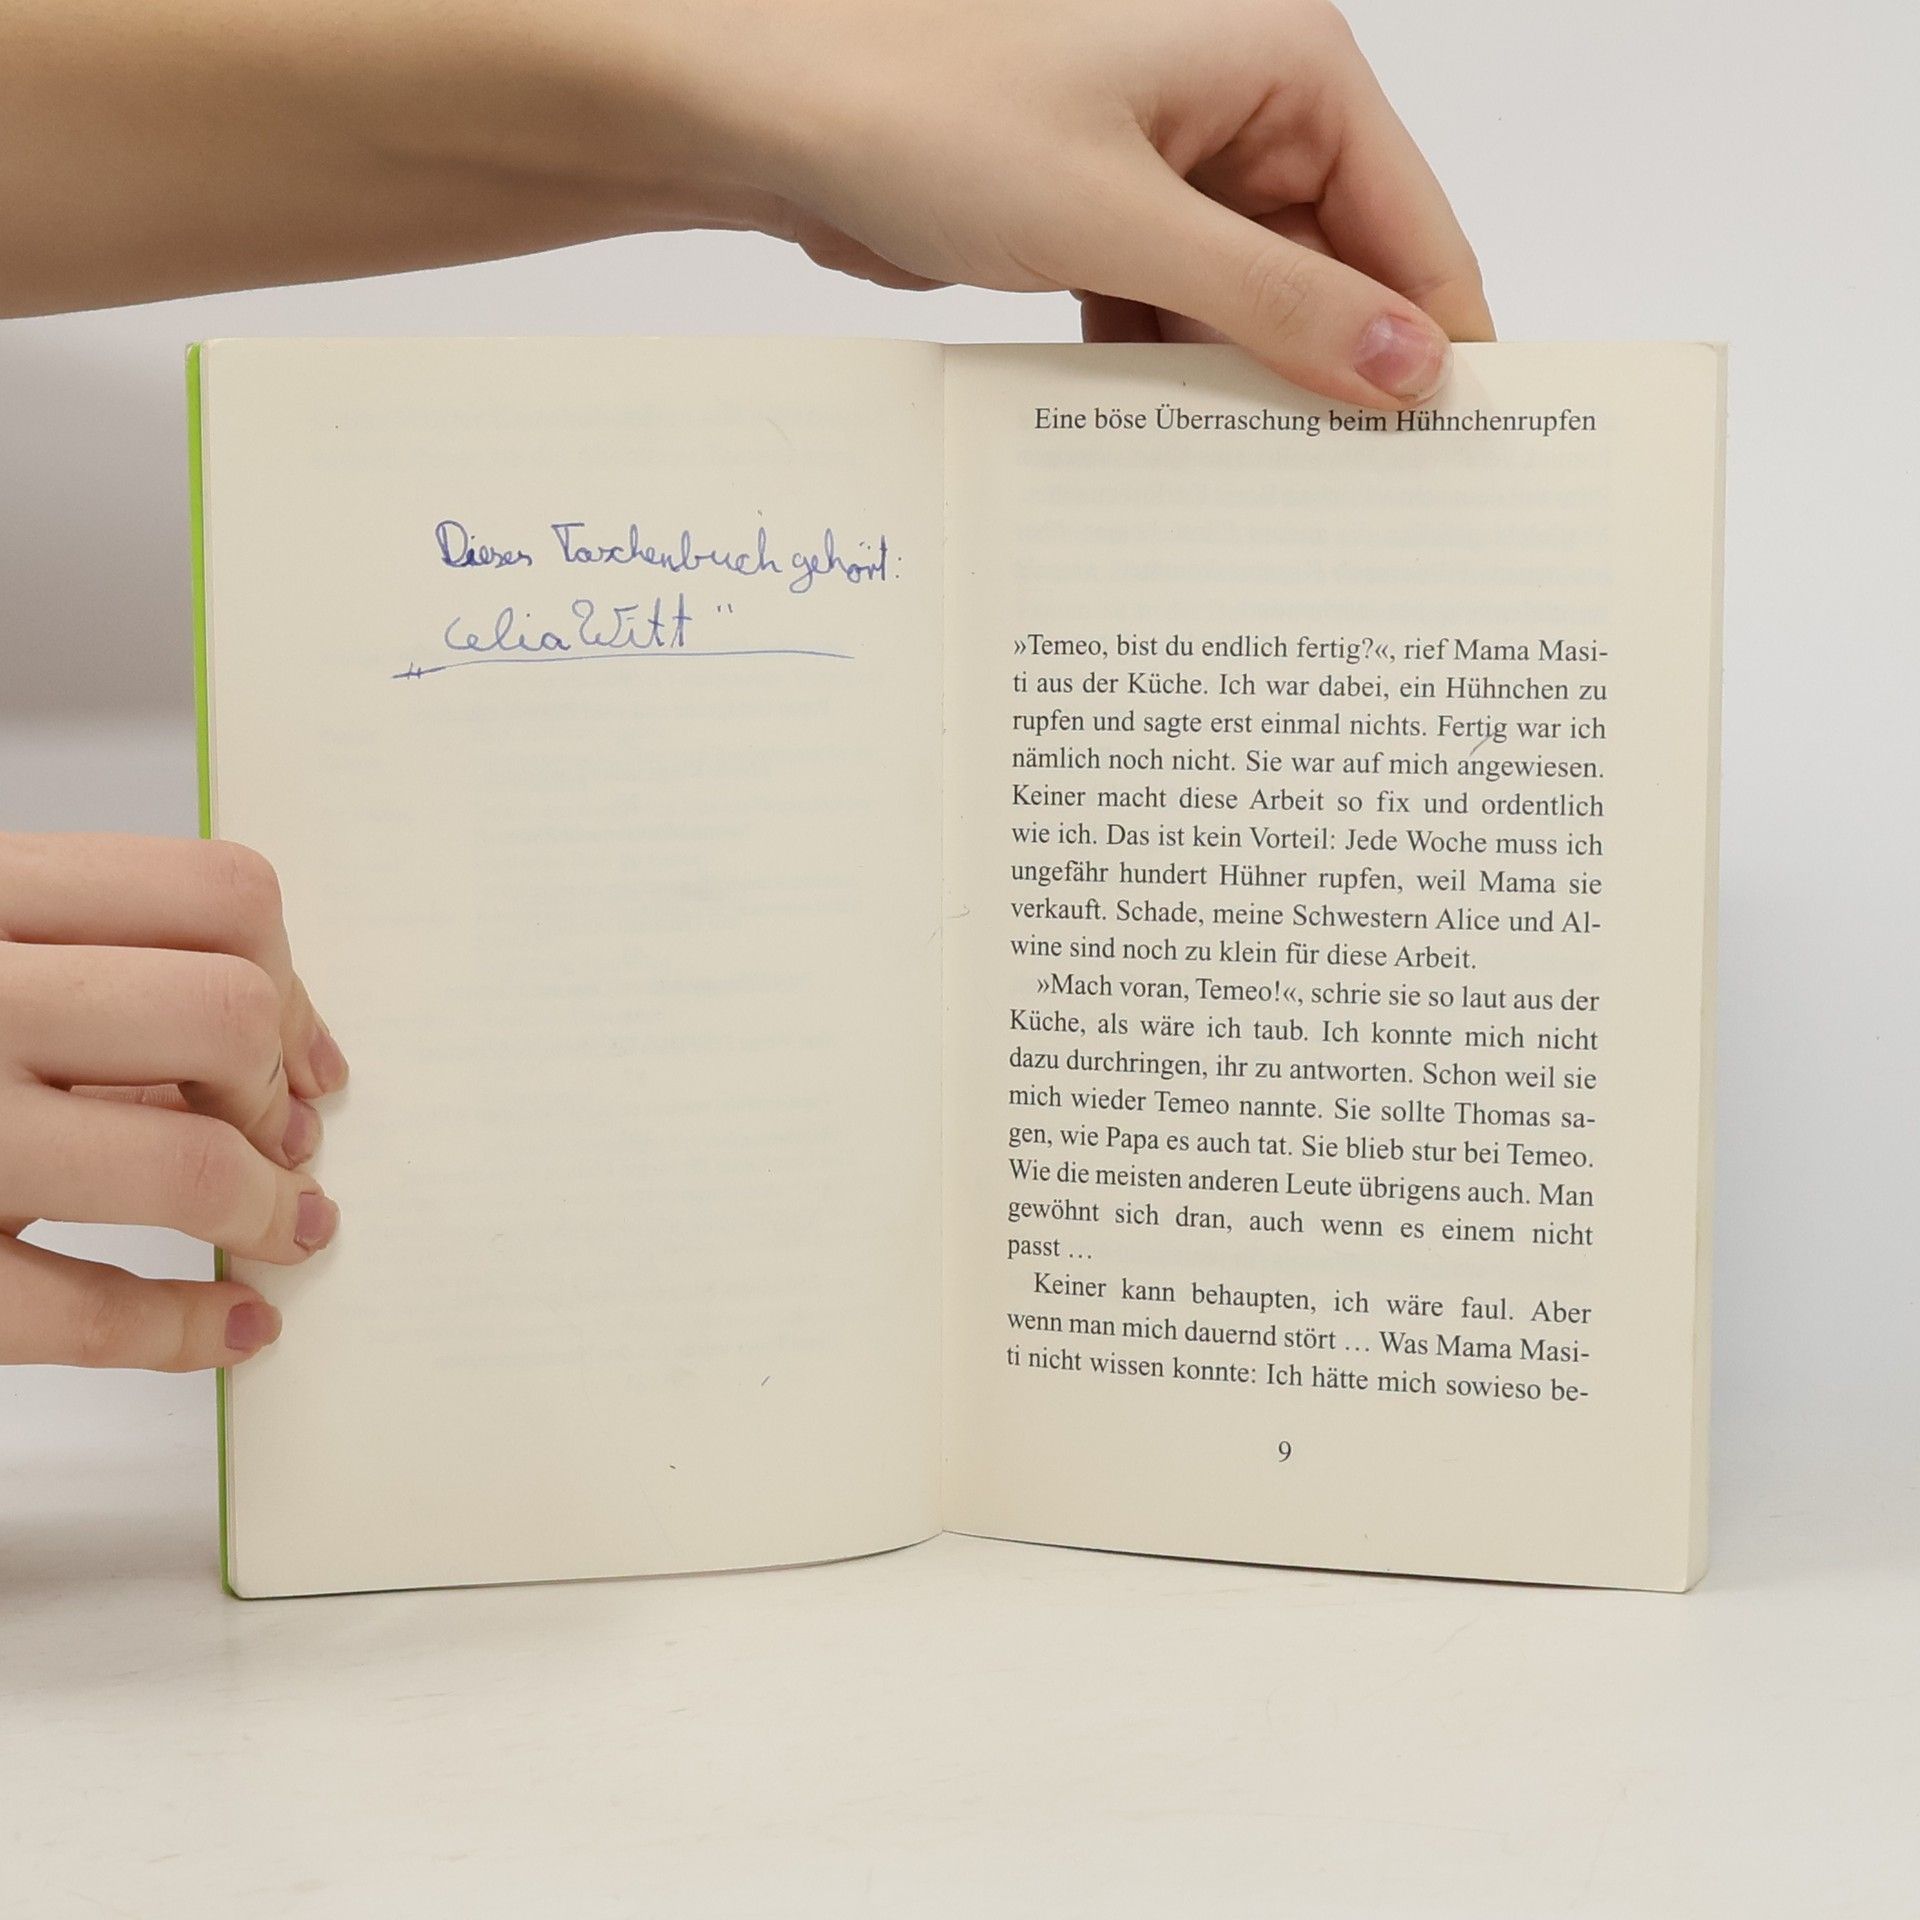 Dieses Taschenbuch gehört:
Celia Witt "
Eine böse Überraschung beim Hühnchenrupfen
»Temeo, bist du endlich fertig?«, rief Mama Masi-
ti aus der Küche. Ich war dabei, ein Hühnchen zu
rupfen und sagte erst einmal nichts. Fertig war ich
nämlich noch nicht. Sie war auf mich angewiesen.
Keiner macht diese Arbeit so fix und ordentlich
wie ich. Das ist kein Vorteil: Jede Woche muss ich
ungefähr hundert Hühner rupfen, weil Mama sie
verkauft. Schade, meine Schwestern Alice und Al-
wine sind noch zu klein für diese Arbeit.
»Mach voran, Temeo!«, schrie sie so laut aus der
Küche, als wäre ich taub. Ich konnte mich nicht
dazu durchringen, ihr zu antworten. Schon weil sie
mich wieder Temeo nannte. Sie sollte Thomas sa-
gen, wie Papa es auch tat. Sie blieb stur bei Temeo.
Wie die meisten anderen Leute übrigens auch. Man
gewöhnt sich dran, auch wenn es einem nicht
passt …
Keiner kann behaupten, ich wäre faul. Aber
wenn man mich dauernd stört … Was Mama Masi-
ti nicht wissen konnte: Ich hätte mich sowieso be-
9